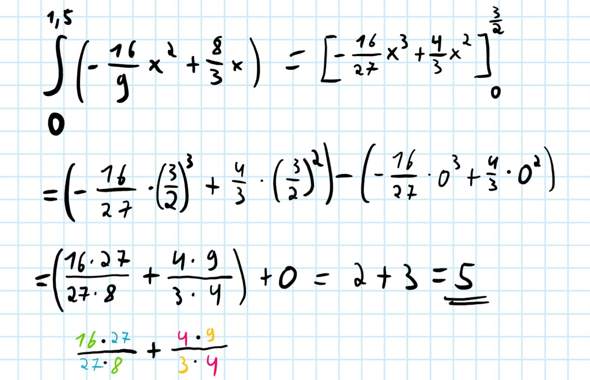 ∫₀^{1,5} (-16/9 x² + 8/3 x) = [-16/27 x³ + 4/3 x²]₀^{3/2}
= (-16/27 · (3/2)³ + 4/3 · (3/2)²) - (-16/27 · 0³ + 4/3 · 0²)
= (16·27/27·8 + 4·9/3·4) + 0 = 2 + 3 = 5
16·27/27·8 + 4·9/3·4